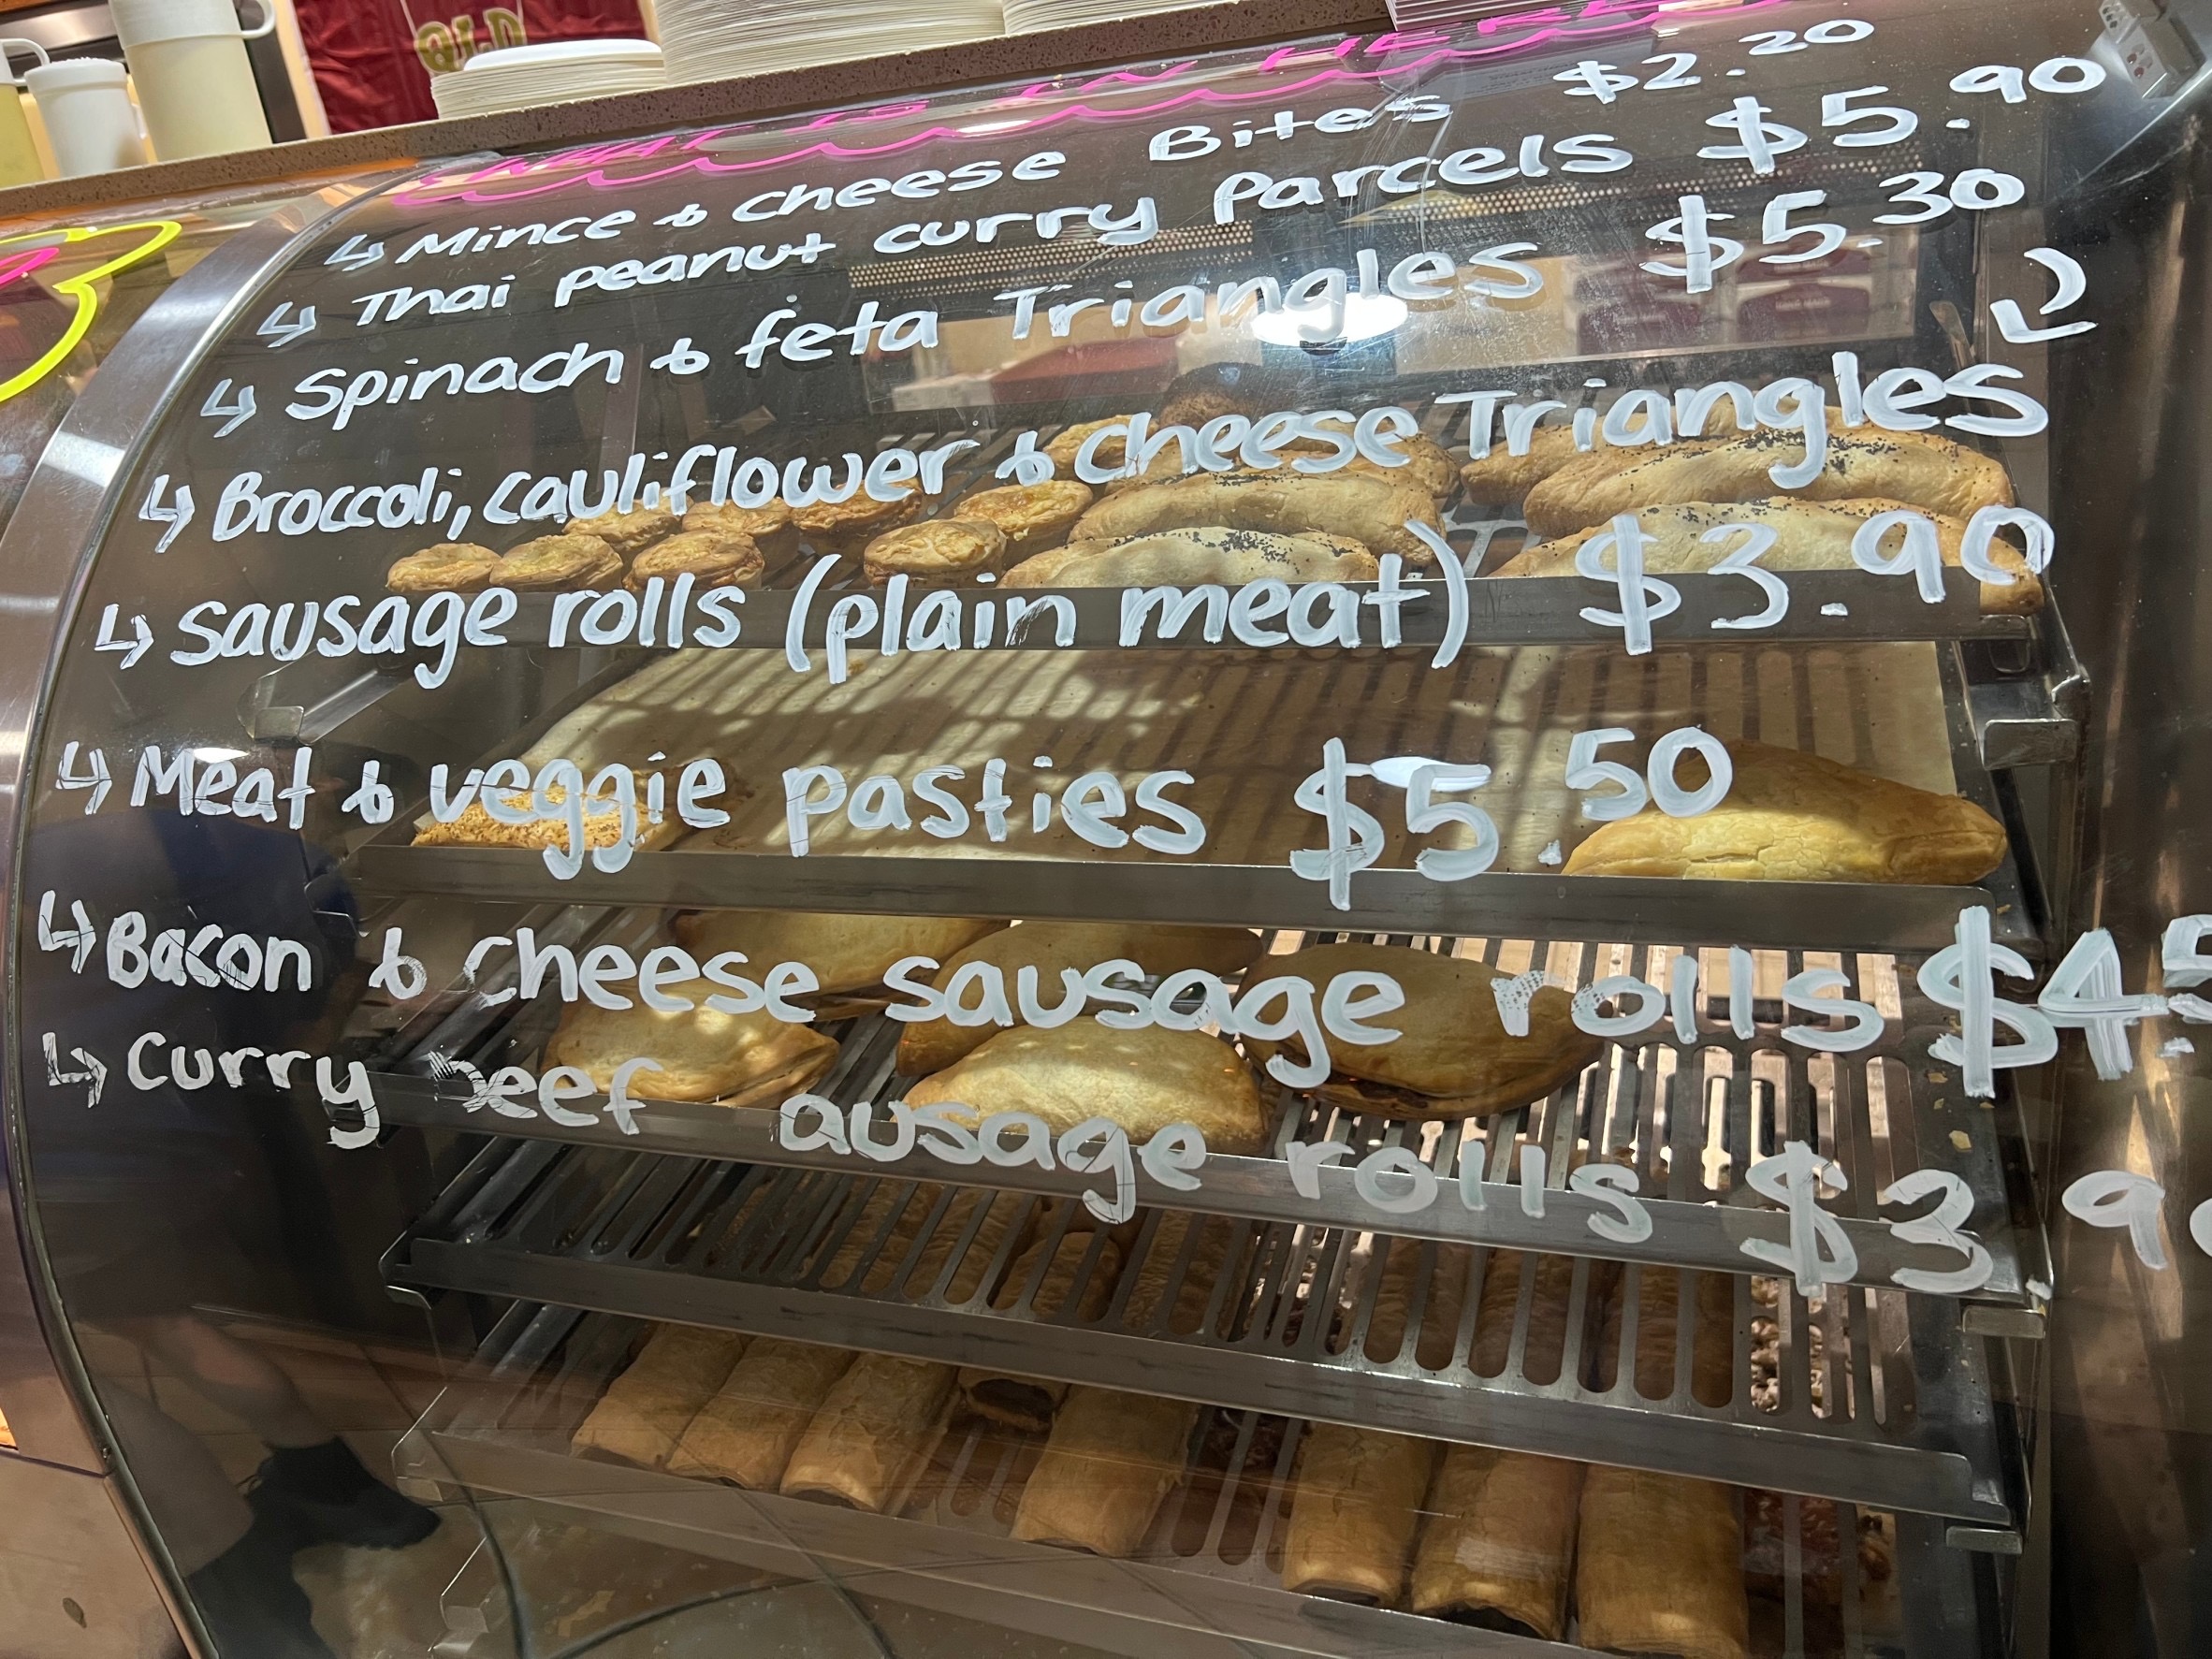 QLD
WHAT IS IN HERE
↳ Mince & Cheese Bites $2.20
↳ Thai peanut curry parcels $5.90
↳ Spinach & feta Triangles $5.30
↳ Broccoli, cauliflower & cheese Triangles
↳ Sausage rolls (plain meat) $3.90
↳ Meat & veggie pasties $5.50
↳ Bacon & cheese sausage rolls $4.5
↳ Curry beef ausage rolls $3 90